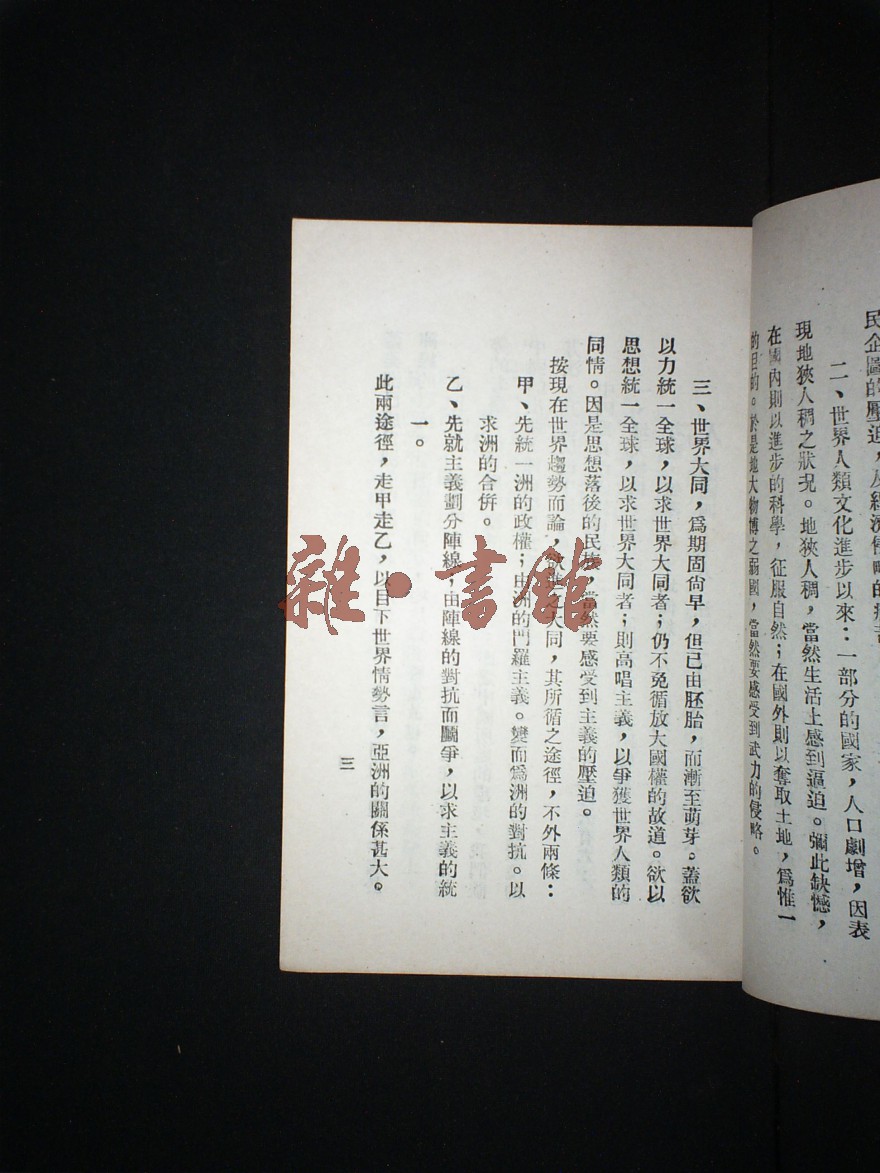 民企圖的壓迫，及經濟侵略的
二、世界人類文化進步以來：一部分的國家，人口劇增，因表
現地狹人稠之狀況。地狹人稠，當然生活上感到逼迫。彌此缺憾，
在國內則以進步的科學，征服自然；在國外則以奪取土地，爲惟一
的目的。於是地大物博之弱國，當然要感受到武力的侵略。
三、世界大同，爲期固尙早，但已由胚胎，而漸至萌芽。蓋欲
以力統一全球，以求世界大同者；仍不免循放大國權的故道。欲以
思想統一全球，以求世界大同者；則高唱主義，以爭獲世界人類的
同情。因是思想落後的民族，當然要感受到主義的壓迫。
按現在世界趨勢而論，欲進之大同，其所循之途徑，不外兩條：
甲、先統一洲的政權；由洲的門羅主義。變而爲洲的對抗。以
求洲的合倂。
乙、先就主義劃分陣線；由陣線的對抗而鬭爭，以求主義的統
一。
此兩途徑，走甲走乙，以目下世界情勢言，亞洲的關係甚大。
三
雜·書館